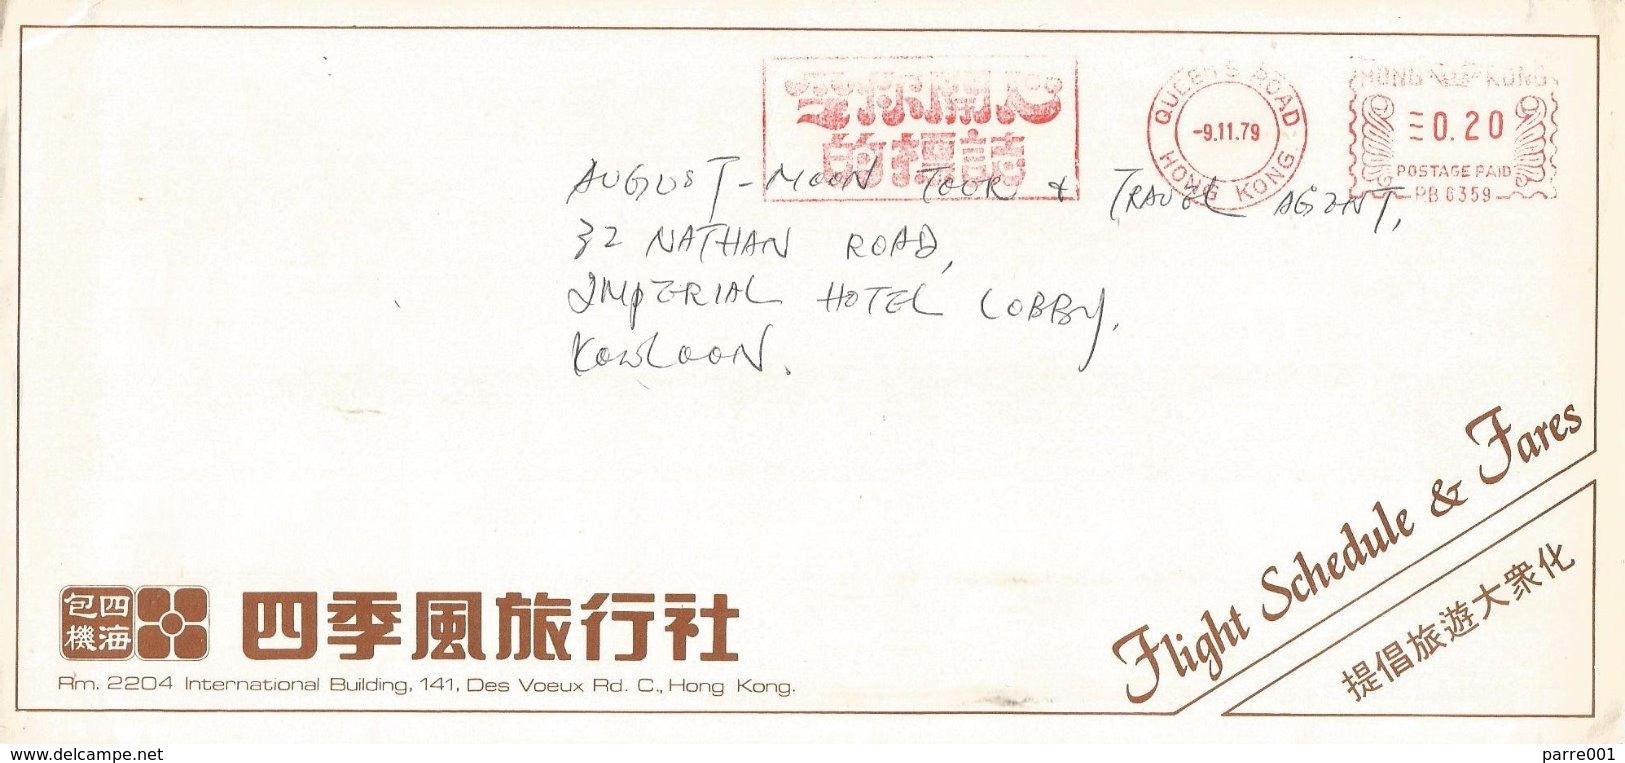 令你開心
的標誌
QUEEN'S ROAD
HONG KONG
-9.11.79
HONG KONG
0.20
POSTAGE PAID
PB 6359
AUGUST-MOON TOUR & TRAVEL AGENT,
32 NATHAN ROAD,
IMPERIAL HOTEL LOBBY,
KOWLOON.
四海
包機
四季風旅行社
Rm. 2204 International Building, 141, Des Voeux Rd. C., Hong Kong.
Flight Schedule & Fares
提倡旅遊大衆化
www.delcampe.net
parre001